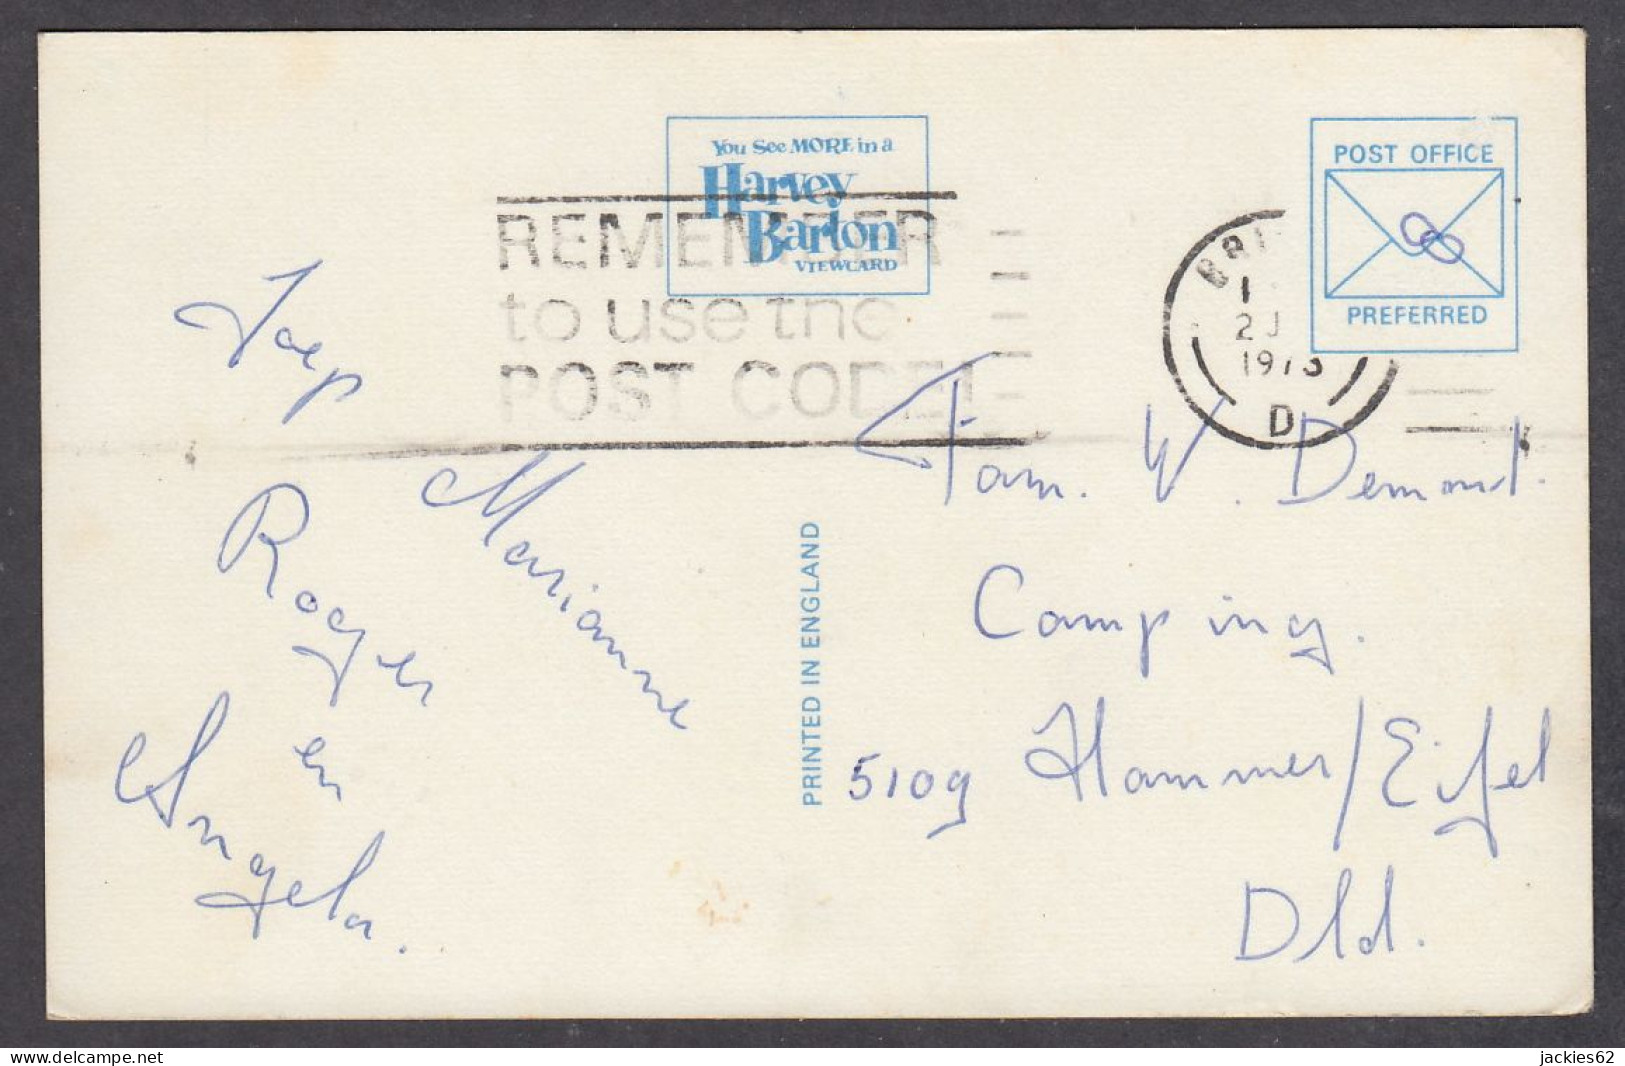 You See MORE in a
Harvey
Barton
VIEWCARD
REMEMBER
to use the
POST CODE!
POST OFFICE
PREFERRED
1
2 J
1973
D
PRINTED IN ENGLAND
Joep
Marianne
Roger
en
Angela.
Fam. W. Demont.
Camping.
5109 Hammer/Eifel
Dld.
jackies62